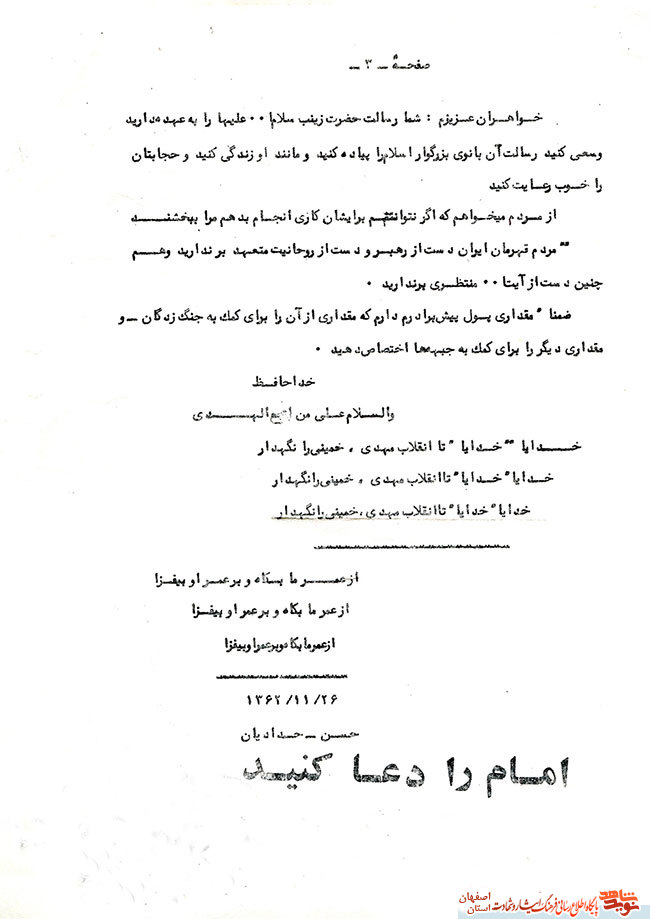 صفحهٔ ـ ۳ ـ
خـواهـران عـزیزم : شما رسالت حضرت زینب سلام ا۰۰ علیها را به عهد مدارید
وسعی کنید رسالت آن بانوی بزرگوار اسلام را پیاده کنید و مانند او زندگی کنید و حجابتان
را خـوب رعـایت کنید
از مـردم میخواهم که اگر نتوانستم برایشان کاری انجـام بدهم مرا ببخشنـد
"" مردم قهرمان ایران دست از رهبر و دست از روحانیت متعهد بر ندارید وهـم
چنین دست از آیتا۰۰ منتظری برندارید ۰
ضمنا" مقداری پـول پیش برادرم دارم که مقداری از آن را برای کمک به جنگ زدگان ـ و
مقداری دیگر را برای کمک به جبهه‌ها اختصاص دهید ۰
خداحافـظ
والسلام عـلی من اتبع الهـدی
خـدایا "" خدایا" تا انقلاب مهدی ، خمینی را نگهدار
خـدایا" خدایا" تاانقلاب مهدی ، خمینی رانگهدار
خدایا" خدایا" تاانقلاب مهدی، خمینی رانگهدار
از عمـر ما بـکاه و بر عمـر او بیفـزا
از عمر ما بکاه و بر عمر او بیفزا
ازعمرمابکاه وبرعمراوبیفزا
۱۳۶۲/۱۱/۲۶
حسـن ـ حـدادیان
امـام را دعـا کنیـد
نوید شاهد
اصفهان
پایگاه اطلاع رسانی فرهنگ ایثار و شهادت استان